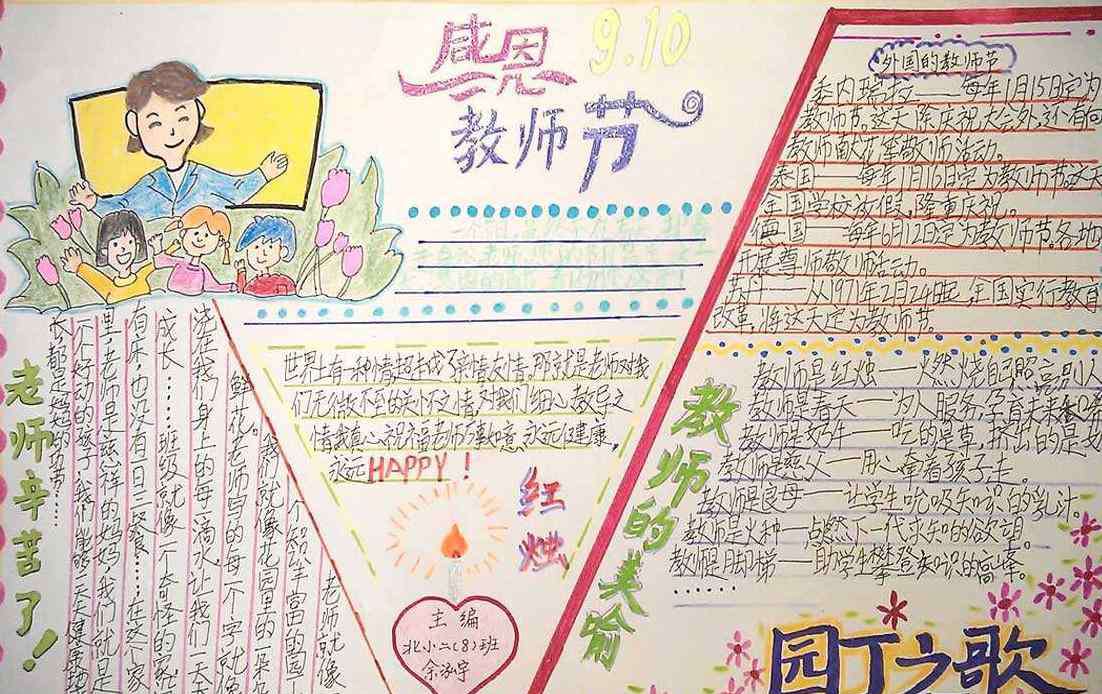 感恩
9.10
教师节
外国的教师节
委内瑞拉——每年1月15日定为
教师节。这天除庆祝大会外,还有向
教师献花等敬师活动。
泰国——每年1月16日定为教师节,这天
全国学校放假,隆重庆祝。
俄国——每年6月12日定为教师节,各地
开展尊师敬师活动。
苏丹——从1971年2月24日起,全国实行教育
改革,将这天定为教师节。
教师的美喻
教师是红烛——燃烧自己照亮别人
教师是春天——为人服务,孕育未来和
教师是奶牛——吃的是草,挤出的是奶
教师是慈父——用心牵着孩子走。
教师是良母——让学生吮吸知识的乳汁。
教师是火种—点燃下一代求知的欲望。
教师是脚梯——助学生攀登知识的高峰。
......
园丁之歌
世界上有一种情超半伐了亲情友情,那就是老师对我
们无微不至的关怀之情,对我们细心教导之
情,我真心祝福老师万事如意,永远健康,
永远HAPPY!
红烛
主编
北小二(8)班
余泓宇
老师辛苦了!
老师就像
一个知识丰富的园丁
我们就像花园里的一朵朵
鲜花。老师写的每一个字就像
浇在我们身上的每一滴水,让我们一天天
成长......班级就像一个奇怪的家